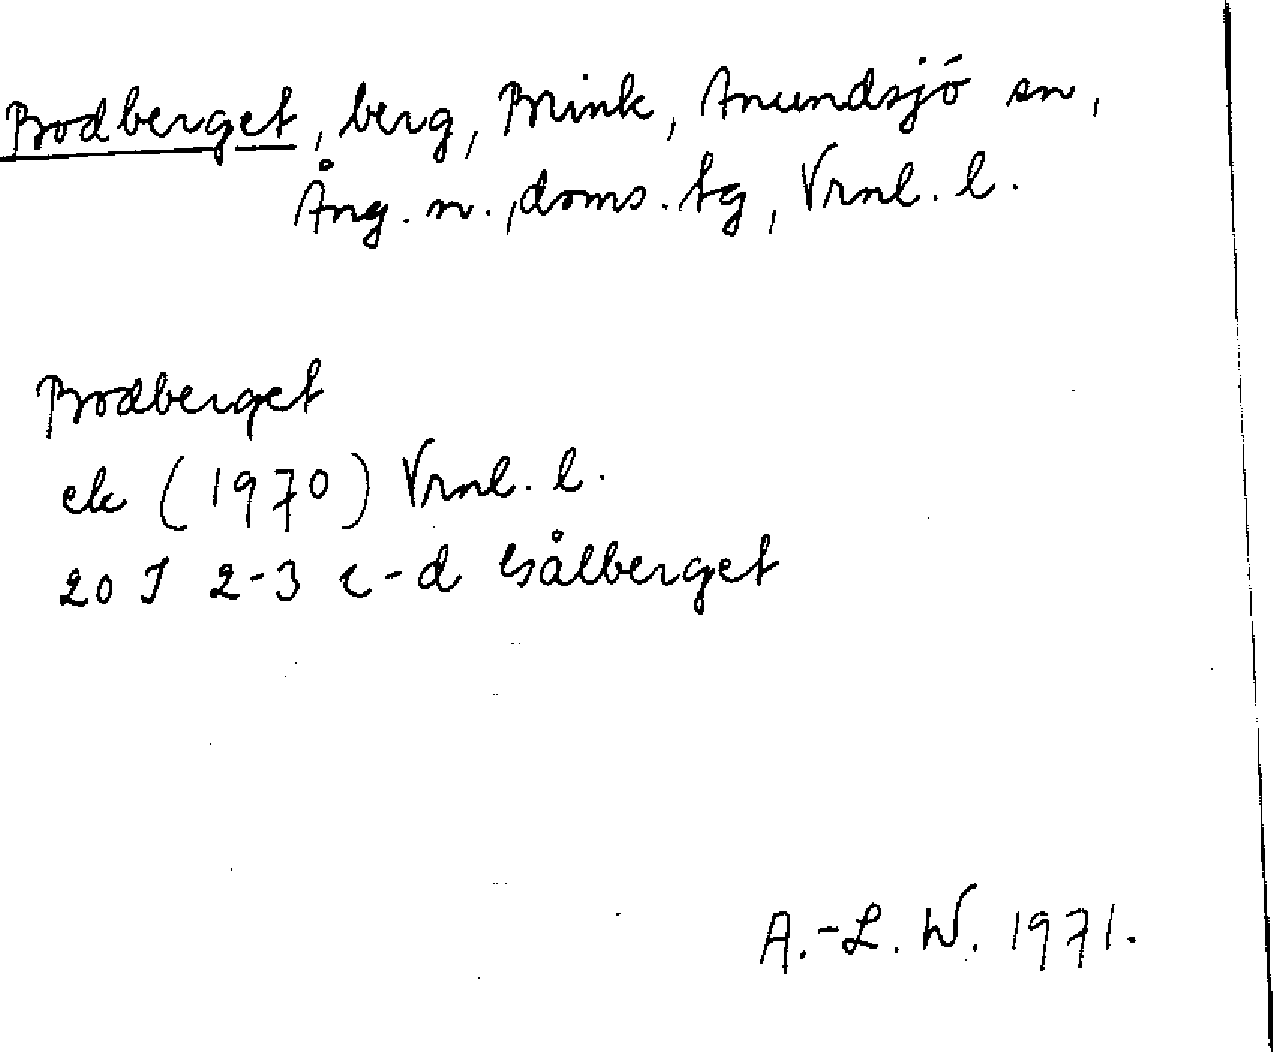 Bodberget, berg, Brink, Anundsjö sn,
Ång. n., doms. tg, Vrnl. l.
Bodberget
ek (1970) Vrnl. l.
20 I 2-3 c-d Gålberget
A.-L. W. 1971.